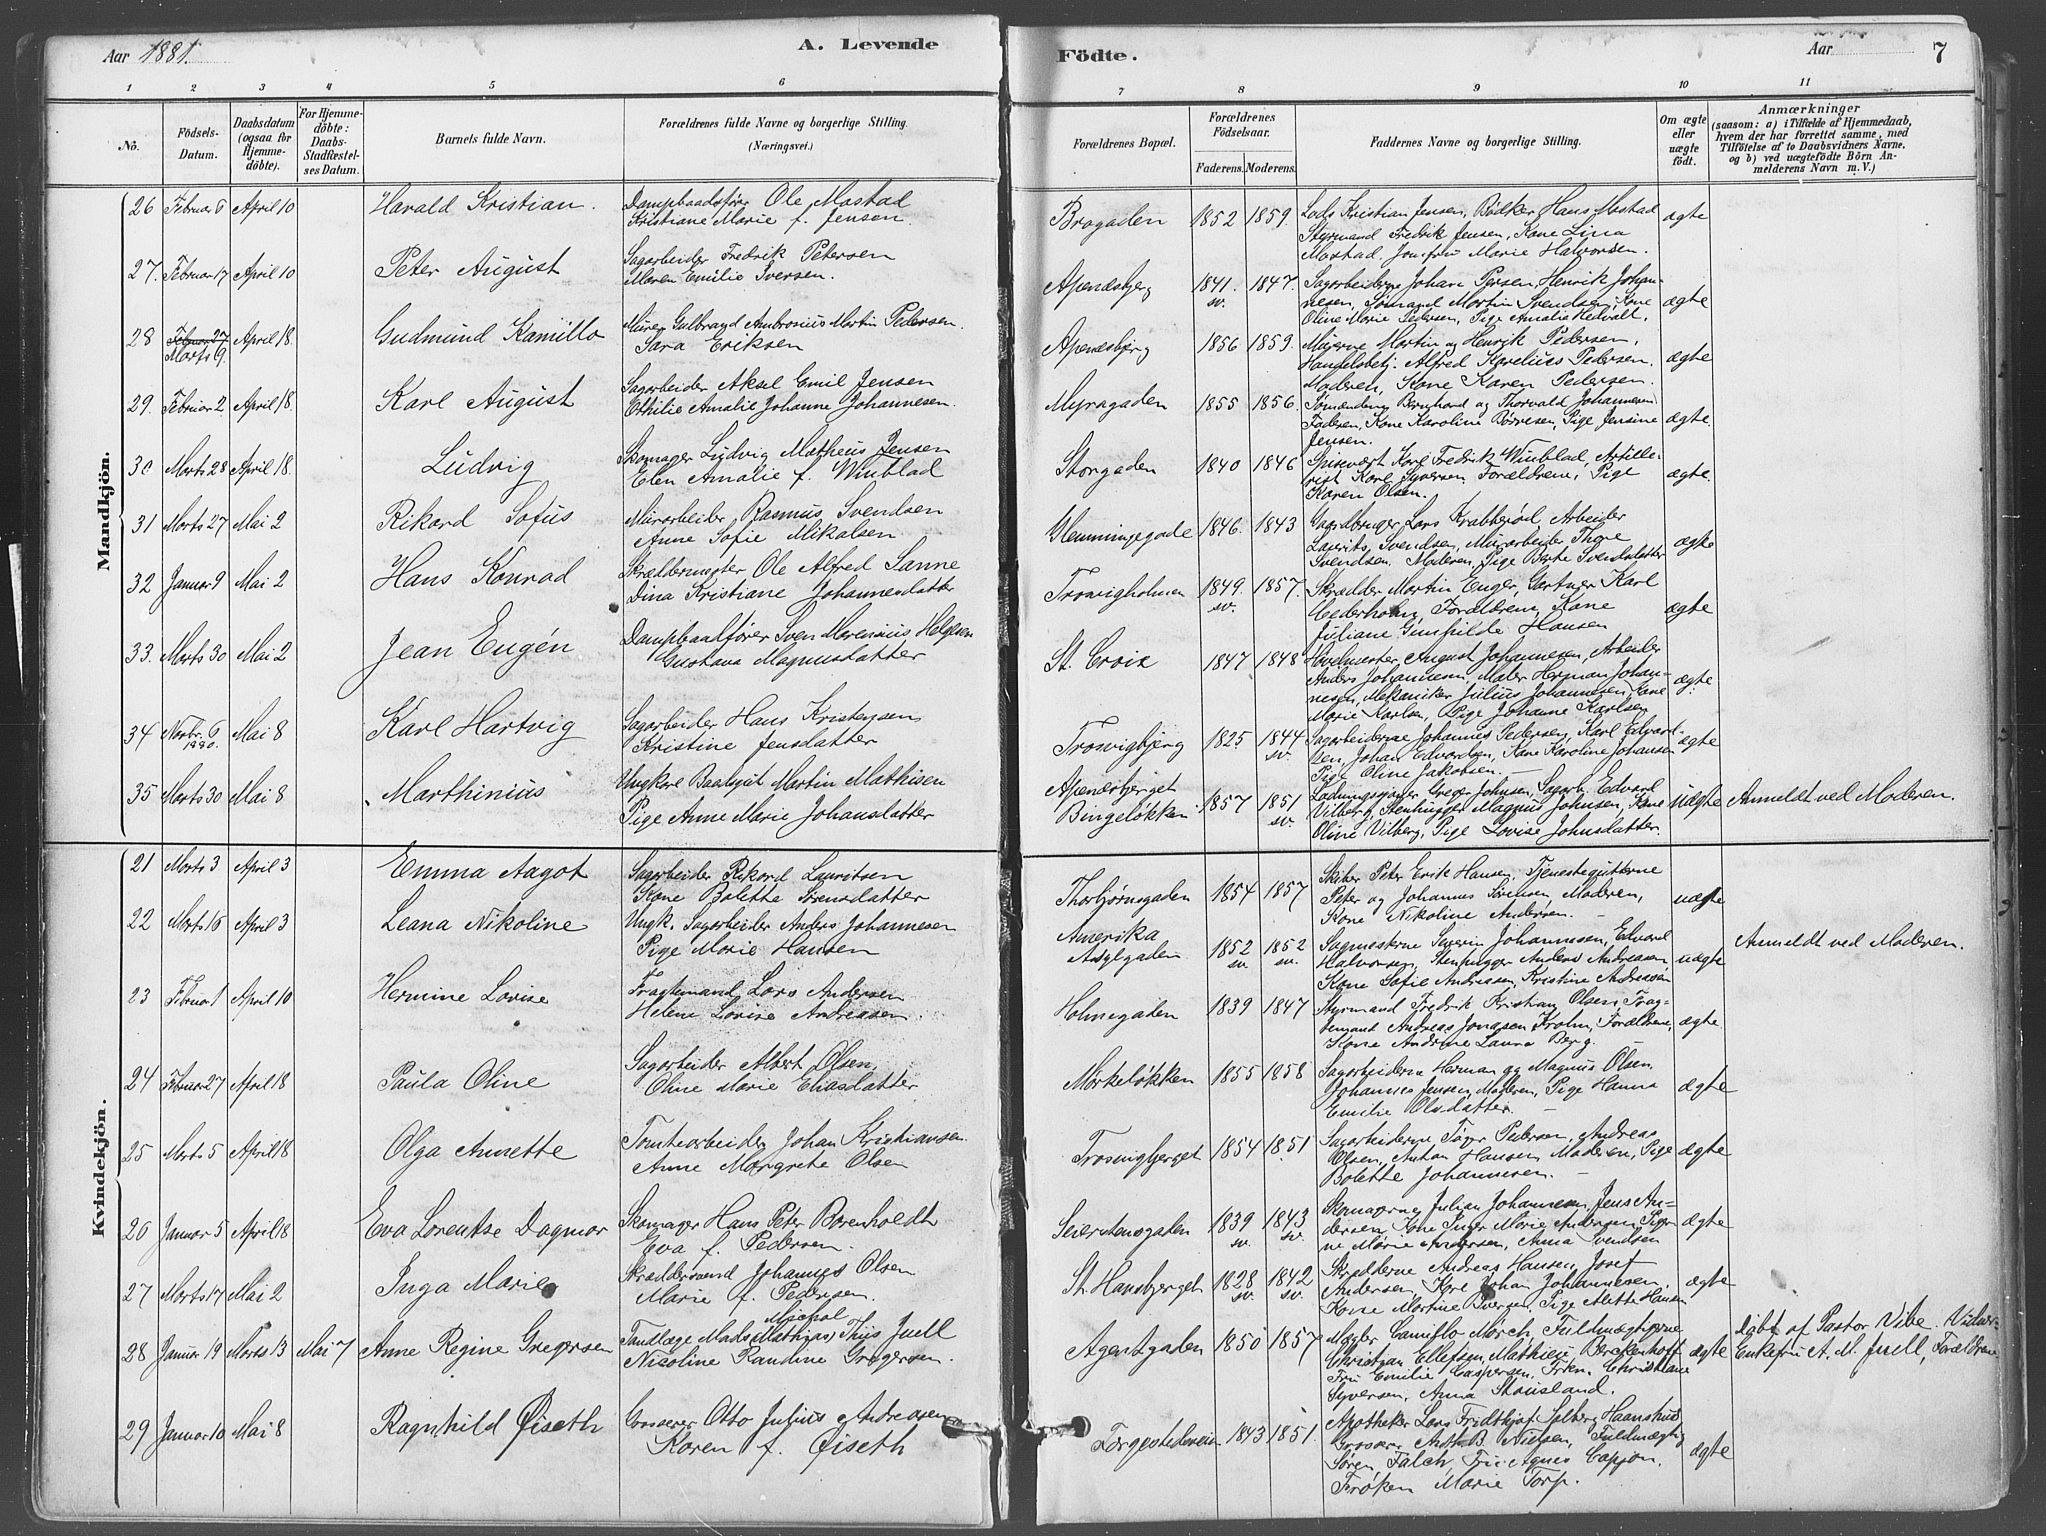 Aar 1881.
A. Levende
Födte.
Aar
7
1 2 3 4 5 6 7 8 9 10 11
No.
Födsels-
Datum.
Daabsdatum
(ogsaa for
Hjemme-
döbte).
For Hjemme-
döbte:
Daabs-
Stadfæstel-
ses Datum.
Barnets fulde Navn.
Forældrenes fulde Navne og borgerlige Stilling.
(Næringsvei.)
Forældrenes Bopæl.
Forældrenes
Födselsaar.
Faderens. Moderens.
Faddernes Navne og borgerlige Stilling.
Om ægte
eller
uægte
födt.
Anmærkninger
(saasom: a) i Tilfælde af Hjemmedaab,
hvem der har forrettet samme, med
Tilföielse af to Daabsvidners Navne,
og b) ved uægtefödte Börn An-
melderens Navn m. V.)
Mandkjön.
26 Februar 6 April 10 Harald Kristian. Dampbaadsfører Ole Mostad
Kristiane Marie f. Jensen
Brogaden 1852 1859. Lods Kristian Jensen, Bødker Hans Mostad
Styrmand Fredrik Jensen, Kone Lina
Mostad, Jomfru Marie Halvorsen. ægte
27. Februar 17 April 10 Peter August Sagarbeider Fredrik Petersen
Maren Emilie Iversen.
Apenæsbjerg 1841. sv. 1847. Sagarbeiderne Johan Persen, Henrik Johan-
nesen, Sømand Martin Svendsen, Kone
Oline Marie Pedersen, Pige Amalie Hedvalt. ægte
28 Februar 27 Marts 9 April 18. Gudmund Kamillo Murer Gulbrand Ambrosius Martin Pedersen.
Sara Eriksen
Apenæsbjerg 1856 1859. Murerne Martin og Henrik Pedersen,
Handelsbetj. Alfred Karelius Pedersen.
Moderen, Kone Karen Pedersen. ægte
29. Februar 2 April 18. Karl August Sagarbeider Aksel Emil Jensen
Othilie Amalie Johanne Johannesen.
Myragaden 1855 1856. Sømændene Bernhard og Thorvald Johannesen
Faderen, Kone Karoline Børresen, Pige Jensine
Jensen. ægte.
30 Marts 28 April 18. Ludvig Skomager Ludvig Matheus Jensen
Elen Amalie f. Winblad
Storgaden 1840 1846 Spisevært Karl Fredrik Winblad, Artille-
rist Karl Syversen, Forældrene, Pige
Karen Olsen. ægte.
31 Marts 27 Mai 2 Rikard Sofus Murarbeider Rasmus Svendsen
Anne Sofie Mikalsen
Glemmingegade 1846. 1843 Gaardbruger Lars Krabberød, Arbeider
Laurits Svendsen, Murarbeider Thore
Svendsen, Moderen, Pige Berte Svendsdatter ægte
32 Januar 9 Mai 2 Hans Konrad Skræddermester Ole Alfred Sanne
Dina Kristiane Johannesdatter
Trosvigholmen 1849. sv. 1857. Skrædder Martin Enger, Gartner Karl
Cederholm, Forældrene, Kone
Juliane Gunhilde Hansen ægte
33. Marts 30 Mai 2 Jean Eugén Dampbaatfører Sven Marenius Helgesen
Gustava Magnusdatter
St. Croix 1847 1848 August Johannesen, Arbeider
Anders Johannesen, Maler Herman Johan-
nesen, Mekaniker Julius Johannesen, Kone
Marie Karlsen, Pige Johanne Karlsen ægte.
34 Novbr. 6 1880. Mai 8 Karl Hartvig Sagarbeider Hans Kristensen
Kristine Jensdatter
Trosvigbjerg 1825 1844 sv. Sagarbeiderne Johannes Pedersen, Karl Edvard-
sen, Johan Edvardsen, Kone Karoline Johansen
Pige Oline Jakobsen. ægte
35 Marts 30 Mai 8 Marthinius Ungkarl Baatsgut Martin Mathisen
Pige Anne Marie Johansdatter
Apenæsbjerget
Bingeløkken 1857 1851 sv. Ladningsgager Johnsen, Sagarb. Edvard
Vilberg, Stenhugger Magnus Johnsen, Kone
Oline Vilberg, Pige Lovise Johnsdatter. uægte Anmeldt ved Moderen.
Kvindekjön.
21 Marts 3 April 3 Emma Aagot Sagarbeider Rikard Lauritsen
Kone Bolette Sørensdatter
Thorbjørnsgaden 1854 1857 Skiber Peter Erik Hansen, Tjenestegutterne
Peter og Johannes Sørensen, Moderen,
Kone Nikoline Andersen. uægte
22 Marts 16 April 3 Leana Nikoline Ungk. Sagarbeider Anders Johannesen
Pige Marie Hansen
Amerika
Asylgaden 1852 sv. 1852 sv. Sagmesterne Severin Johannesen, Edvard
Halvorsen, Stenhugger Anders Andreasen
Kone Sofie Andreasen, Kristine Andreasen uægte Anmeldt ved Moderen.
23 Februar 1 April 10 Hermine Lovise Fragtemand Lars Andersen
Helene Lovise Andreasen.
Holmegaden 1839 1847 Styrmand Fredrik Kristian Olsen, Frag-
temand Andreas Jonassen Krohn, Forældrene,
Kone Andrine Laura Berg. ægte
24 Februar 27 April 18 Paula Oline Sagarbeider Albert Olsen,
Oline Marie Eliasdatter
Mørkeløkken 1855 1858 Sagarbeiderne Herman og Magnus Olsen,
Johannes Jensen, Moderen, Pige Hanna
Emilie Olsdatter. ægte
25 Marts 5 April 18 Olga Annette Tomtearbeider Johan Kristiansen.
Anne Margrete Olsen
Trosvigbjerget 1854 1851 Sagarbeiderne Tøger Pedersen, Andreas
Olsen, Anton Hansen, Moderen, Pige
Bolette Johannesen. ægte
26 Januar 5 April 18 Eva Lorentse Dagmar Skomager Hans Peter Borenholdt
Eva f. Pedersen.
Seierstensgaden 1839 sv. 1843 sv. Skomagerne Julian Johannesen, Jens An-
dersen, Kone Inger Marie Andersen, Piger-
ne Marie Andersen, Anna Svendsen ægte
27 Marts 17 Mai 2 Inga Marie Skræddersvend Johannes Olsen
Marie f. Pedersen.
St. Hansbjerget 1828 sv. 1842 sv. Skrædderne Andreas Hansen, Josef
Andersen, Karl Johan Johannesen.
Kone Martine Iversen, Pige Alette Hansen ægte
28 Januar 19 Marts 13 Mai 7 Anne Regine Gregersen Tandlæge Mads Mathias Michal Thiis Juell
Nicoline Pauline Gregersen.
Agentgaden 1850 1857 Mægler Camillo Mørch, Fuldmægtigerne
Christian Ellefsen, Mathieu Brekenhoff
Fru Emilie Caspersen, Frkn. Christiane
Syversen, Anna Stousland. ægte Døbt af Pastor Vibe. Vidner
Enkefru A. M. Juell, Forældrene
29 Januar 10 Mai 8 Ragnhild Øiseth Grosserer Otto Julius Andreasen
Karen f. Øiseth
Færgestedsveien 1843 1851. Apotheker Lars Fridthjof Solberg Haanshus
Grosserer Andr. B. Nielsen, Fuldmægtig
Søren Falch, Fru Agnes Cappon.
Frøken Marie Torp. ægte